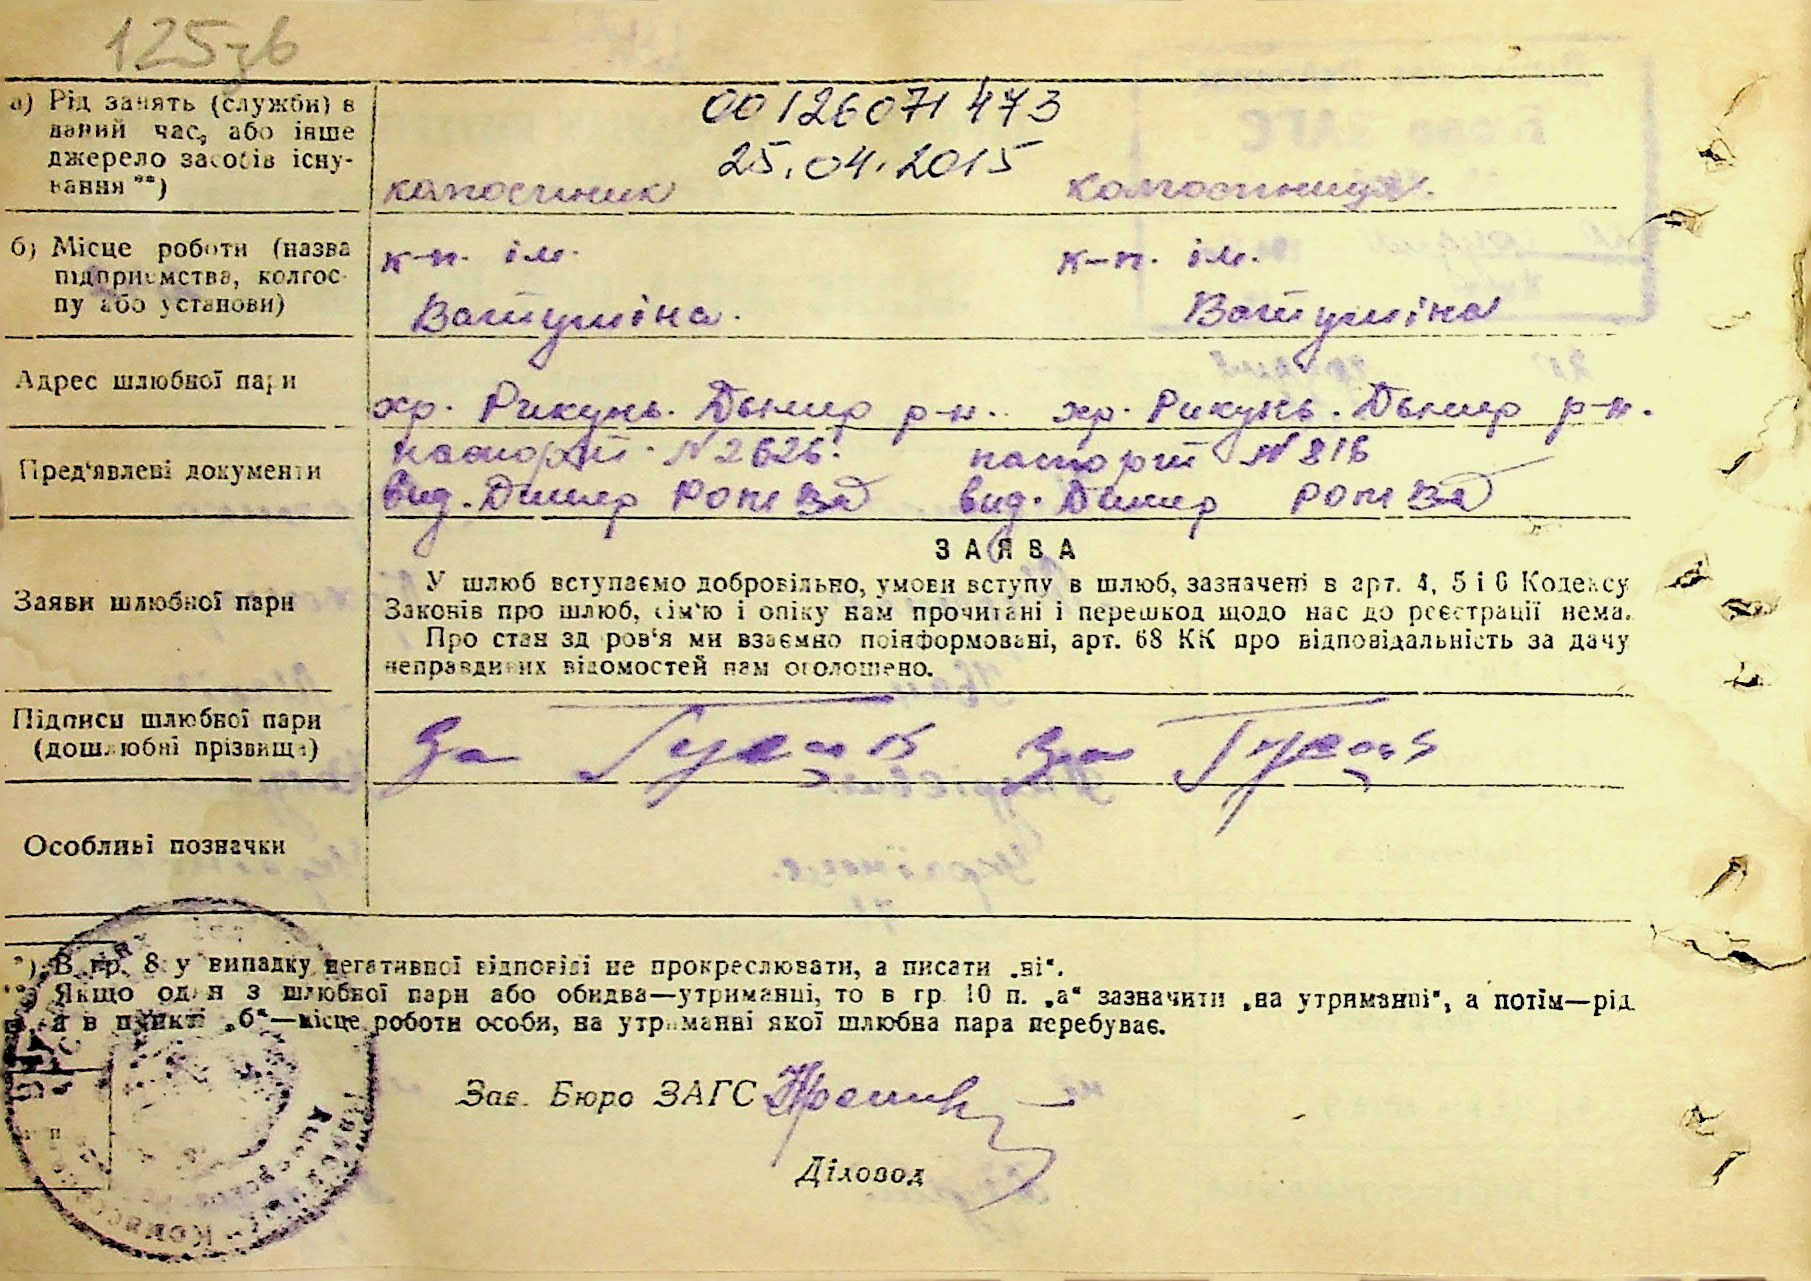 125зв
00126071473
25.04.2015
а) Рід занять (служби) в
даний час, або інше
джерело засобів існу-
вання **)
колгоспник колгоспниця.
б) Місце роботи (назва
підприємства, колгос-
пу або установи)
к-п. ім. к-п. ім.
Ватутіна. Ватутіна
Адрес шлюбної пари
хр. Рикунь. Димер р-н. хр. Рикунь. Димер р-н.
Пред'явлені документи
паспорт №2626. паспорт №816
вид. Димер вид. Димер
ЗАЯВА
Заяви шлюбної пари
У шлюб вступаємо добровільно, умови вступу в шлюб, зазначені в арт. 4, 5 і 6 Кодексу
Законів про шлюб, сім'ю і опіку нам прочитані і перешкод щодо нас до реєстрації нема.
Про стан здоров'я ми взаємно поінформовані, арт. 68 КК про відповідальність за дачу
неправдивих відомостей нам оголошено.
Підписи шлюбної пари
(дошлюбні прізвища)
За За
Особливі позначки
*) В гр. 8 у випадку негативної відповіді не прокреслювати, а писати „ні“.
**) Якщо один з шлюбної пари або обидва—утриманці, то в гр. 10 п. „а“ зазначити „на утриманні“, а потім—рід
в пункті „б“—місце роботи особи, на утриманні якої шлюбна пара перебуває.
Зав. Бюро ЗАГС
Діловод